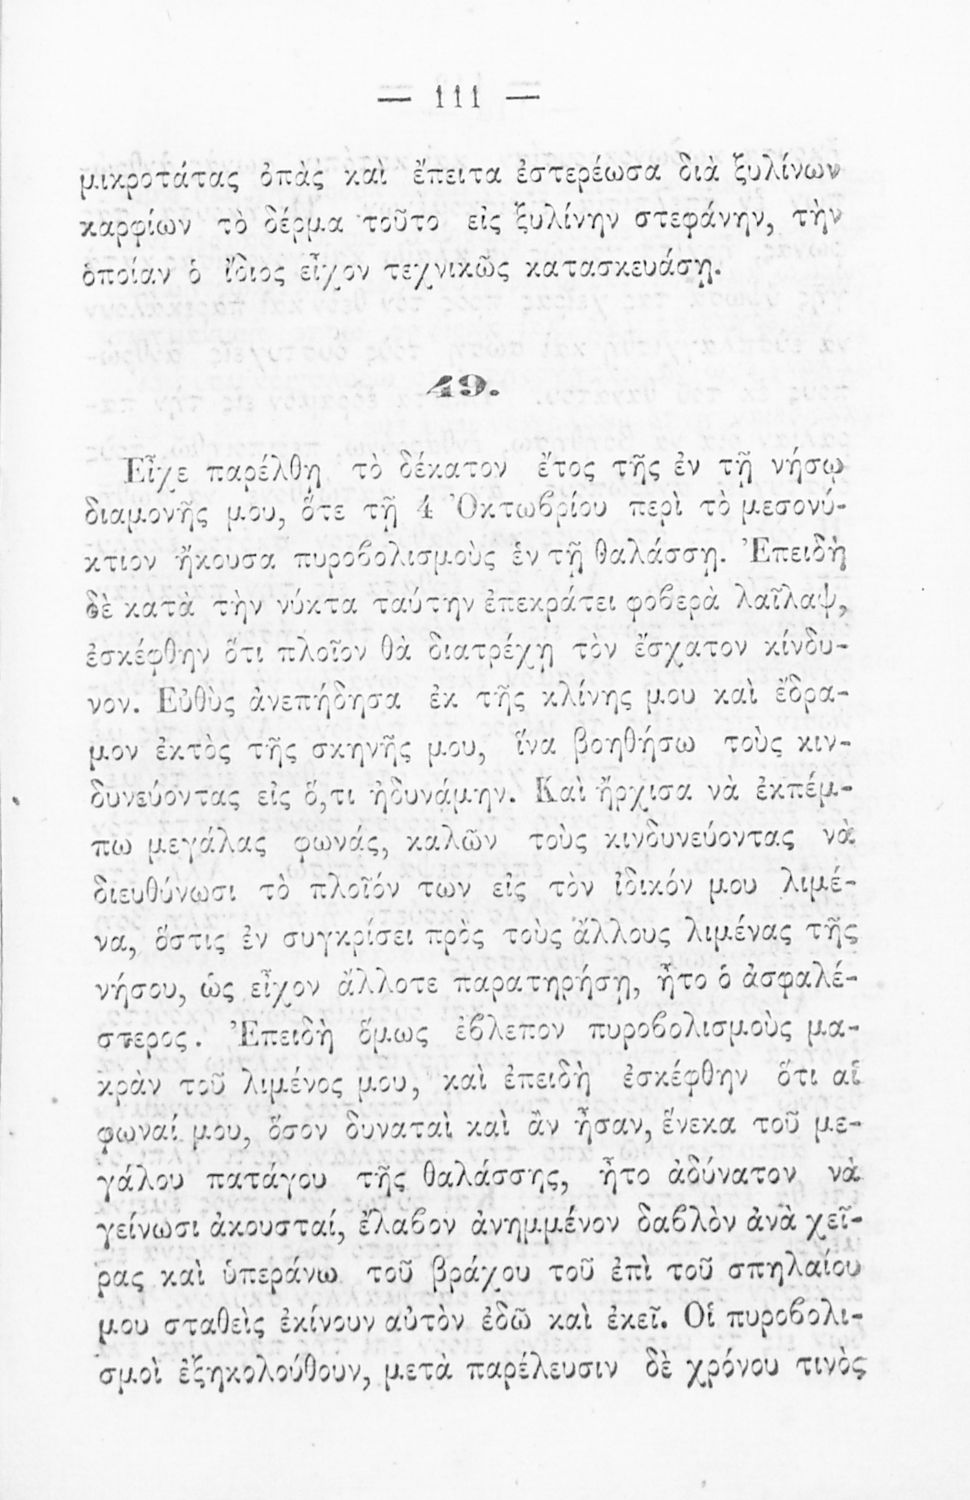 — 111 —
μικροτάτας ὀπὰς καὶ ἔπειτα ἐστερέωσα διὰ ξυλίνων
καρφίων τὸ δέρμα τοῦτο εἰς ξυλίνην στεφάνην, τὴν
ὁποίαν ὁ ἴδιος εἶχον τεχνικῶς κατασκευάσῃ.
49.
Εἶχε παρέλθῃ τὸ δέκατον ἔτος τῆς ἐν τῇ νήσῳ
διαμονῆς μου, ὅτε τῇ 4 Ὀκτωβρίου περὶ τὸ μεσονύ-
κτιον ἤκουσα πυροβολισμοὺς ἐν τῇ θαλάσσῃ. Ἐπειδὴ
δὲ κατὰ τὴν νύκτα ταύτην ἐπεκράτει φοβερὰ λαῖλαψ,
ἐσκέφθην ὅτι πλοῖον θὰ διατρέχῃ τὸν ἔσχατον κίνδυ-
νον. Εὐθὺς ἀνεπήδησα ἐκ τῆς κλίνης μου καὶ ἔδρα-
μον ἐκτὸς τῆς σκηνῆς μου, ἵνα βοηθήσω τοὺς κιν-
δυνεύοντας εἰς ὅ,τι ἠδυνάμην. Καὶ ἤρχισα νὰ ἐκπέμ-
πω μεγάλας φωνάς, καλῶν τοὺς κινδυνεύοντας νὰ
διευθύνωσι τὸ πλοῖόν των εἰς τὸν ἰδικόν μου λιμέ-
να, ὅστις ἐν συγκρίσει πρὸς τοὺς ἄλλους λιμένας τῆς
νήσου, ὡς εἶχον ἄλλοτε παρατηρήσῃ, ἦτο ὁ ἀσφαλέ-
στερος. Ἐπειδὴ ὅμως ἔβλεπον πυροβολισμοὺς μα-
κρὰν τοῦ λιμένος μου, καὶ ἐπειδὴ ἐσκέφθην ὅτι αἱ
φωναί μου, ὅσον δυναταὶ καὶ ἂν ἦσαν, ἕνεκα τοῦ με-
γάλου πατάγου τῆς θαλάσσης, ἦτο ἀδύνατον νὰ
γείνωσι ἀκουσταί, ἔλαβον ἀνημμένον δαβλὸν ἀνὰ χεῖ-
ρας καὶ ὑπεράνω τοῦ βράχου τοῦ ἐπὶ τοῦ σπηλαίου
μου σταθεὶς ἐκίνουν αὐτὸν ἐδῶ καὶ ἐκεῖ. Οἱ πυροβολι-
σμοὶ ἐξηκολούθουν, μετὰ παρέλευσιν δὲ χρόνου τινὸς